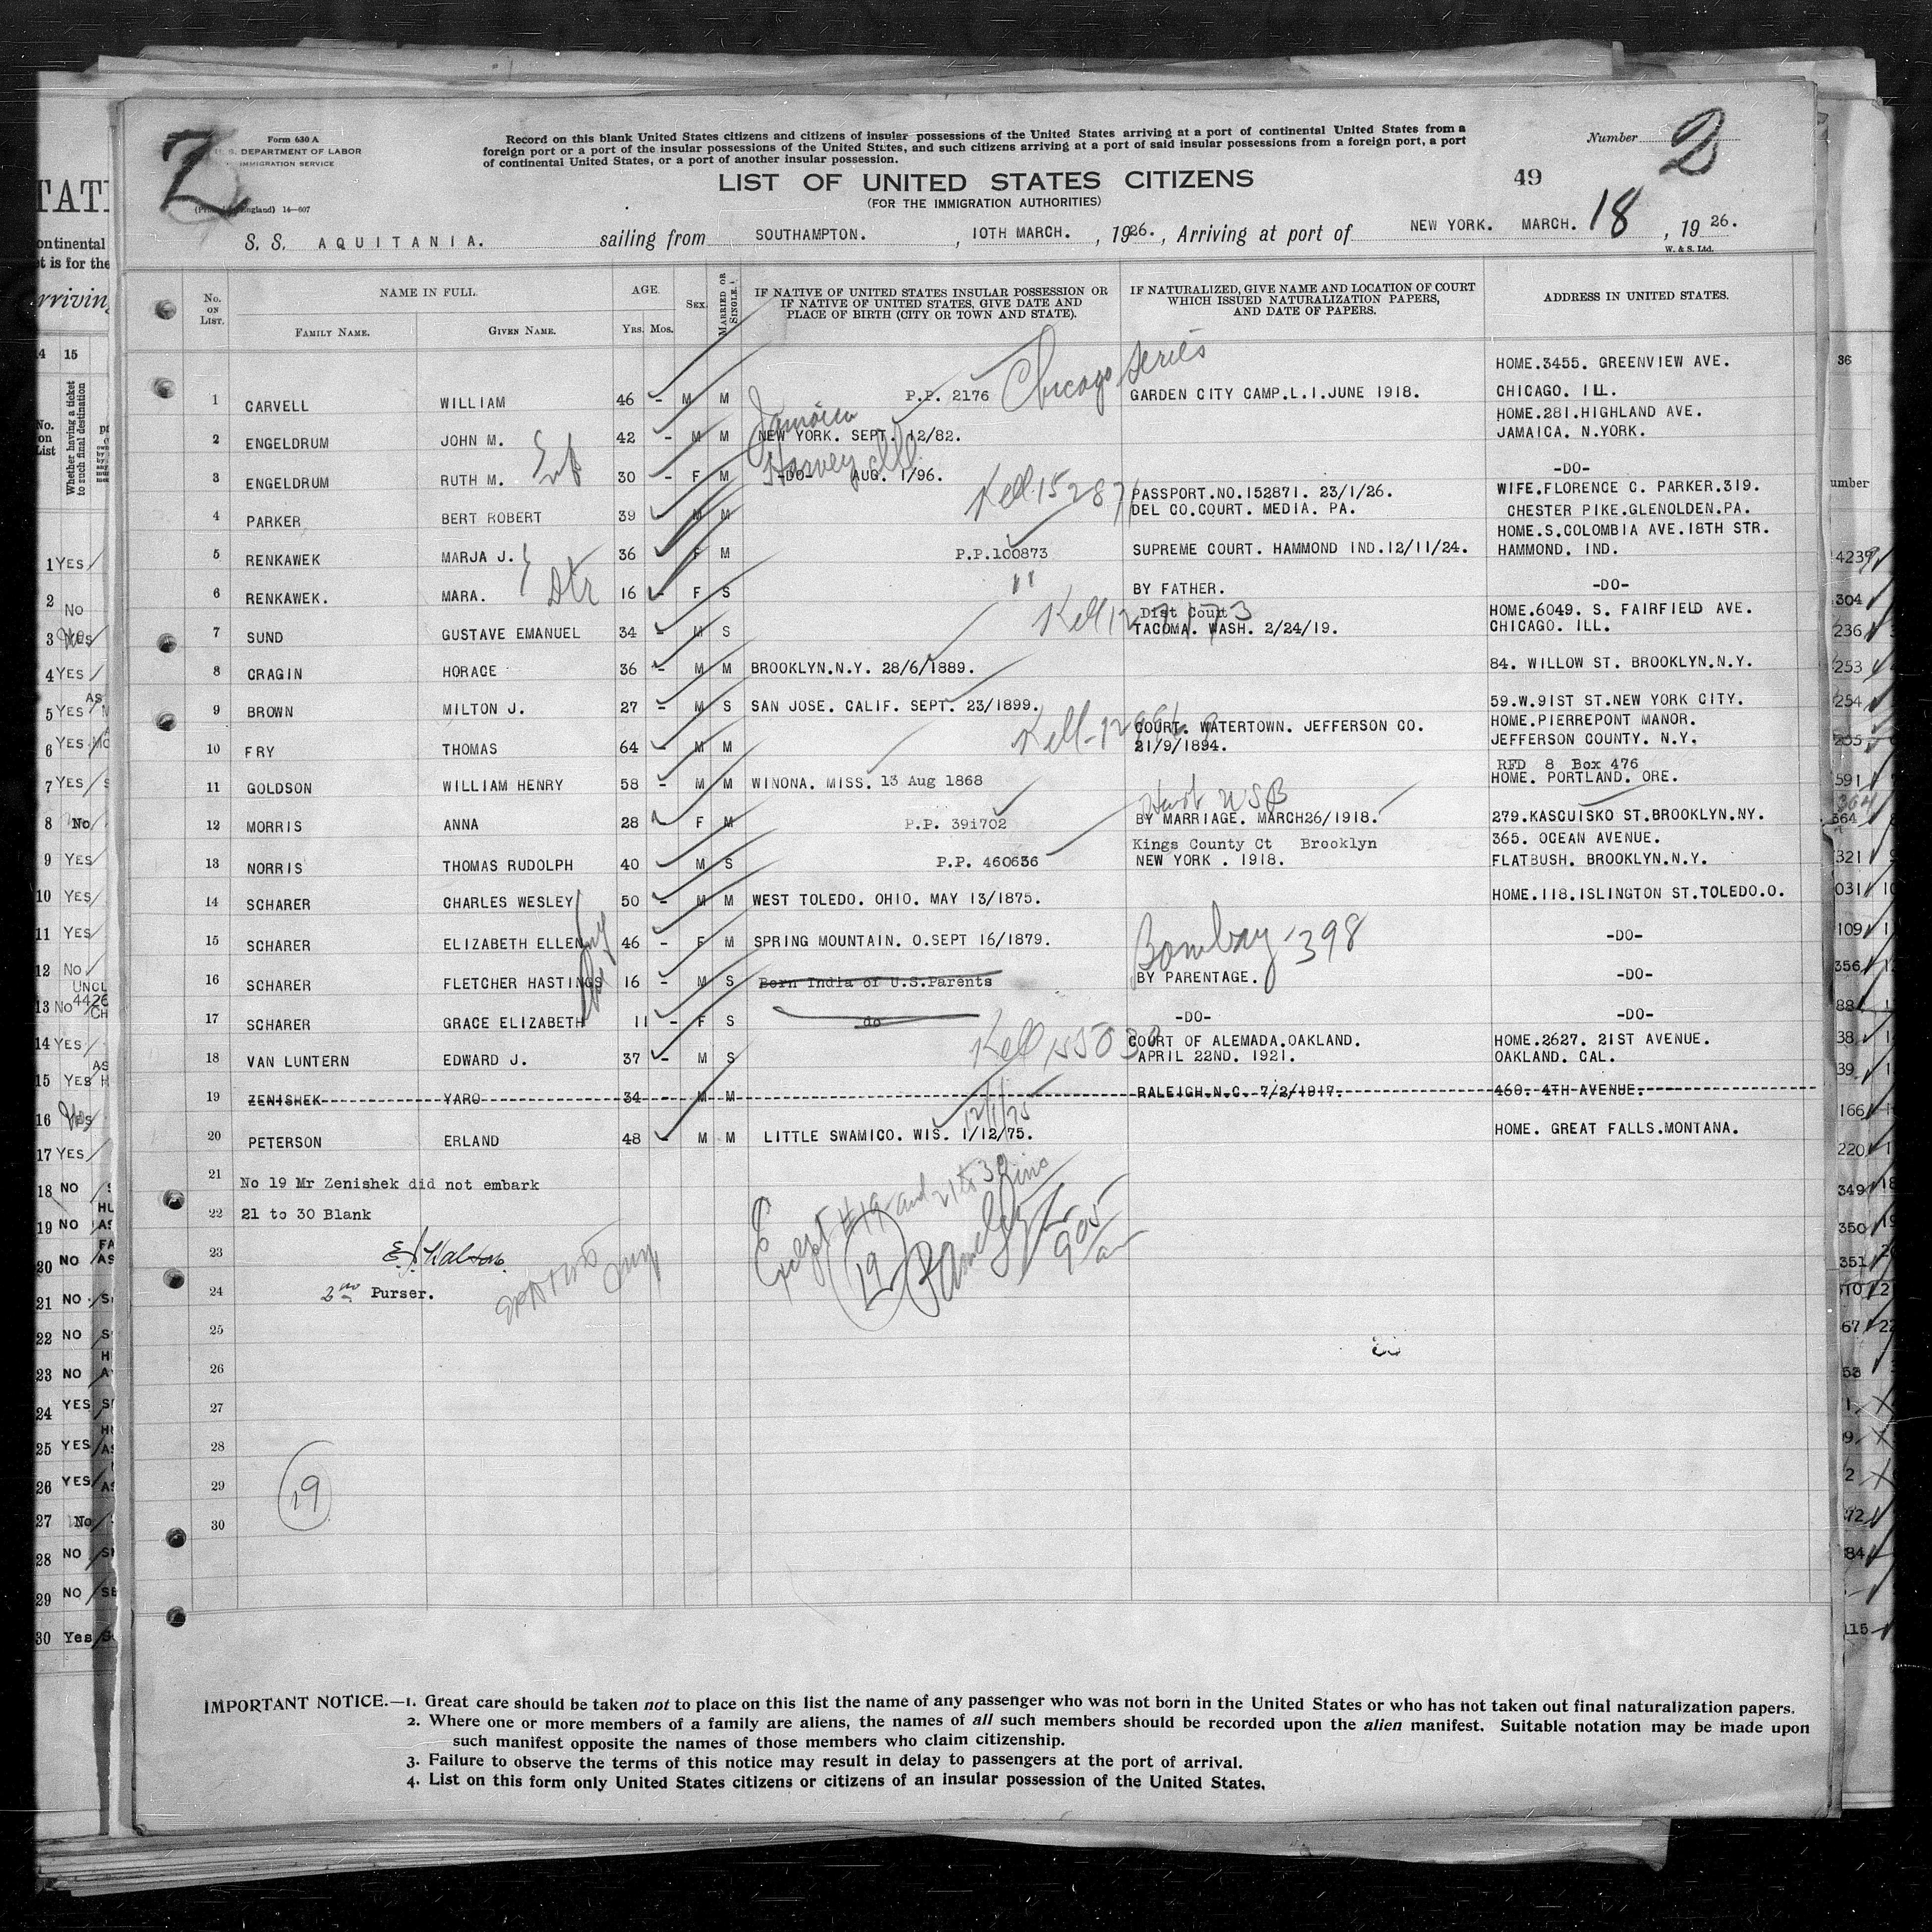 Form 630 A
U. S. DEPARTMENT OF LABOR
IMMIGRATION SERVICE
(Printed in England) 14—607
Record on this blank United States citizens and citizens of insular possessions of the United States arriving at a port of continental United States from a
foreign port or a port of the insular possessions of the United States, and such citizens arriving at a port of said insular possessions from a foreign port, a port
of continental United States, or a port of another insular possession.
Number 2
LIST OF UNITED STATES CITIZENS
49
(FOR THE IMMIGRATION AUTHORITIES)
S. S. AQUITANIA. sailing from SOUTHAMPTON. , 10TH MARCH. , 1926. , Arriving at port of NEW YORK. MARCH. 18 , 1926.
W. & S. Ltd.
No. ON LIST.
NAME IN FULL.
FAMILY NAME.
GIVEN NAME.
AGE.
YRS. MOS.
SEX.
MARRIED OR SINGLE.
IF NATIVE OF UNITED STATES INSULAR POSSESSION OR
IF NATIVE OF UNITED STATES, GIVE DATE AND
PLACE OF BIRTH (CITY OR TOWN AND STATE).
IF NATURALIZED, GIVE NAME AND LOCATION OF COURT
WHICH ISSUED NATURALIZATION PAPERS,
AND DATE OF PAPERS.
ADDRESS IN UNITED STATES.
Chicago Series
HOME.3455. GREENVIEW AVE.
1 CARVELL WILLIAM 46 - M M P.P. 2176 GARDEN CITY CAMP.L.I.JUNE 1918. CHICAGO. ILL.
Jamaica
HOME.281.HIGHLAND AVE.
2 ENGELDRUM JOHN M. 42 - M M NEW YORK. SEPT. 12/82. JAMAICA. N.YORK.
Harvey Ill.
3 ENGELDRUM RUTH M. 30 - F M -DO- AUG. 1/96. -DO-
Kell 152871
PASSPORT.NO.152871. 23/1/26. WIFE.FLORENCE C. PARKER.319.
4 PARKER BERT ROBERT 39 M M DEL CO.COURT. MEDIA. PA. CHESTER PIKE.GLENOLDEN.PA.
HOME.S.COLOMBIA AVE.18TH STR.
5 RENKAWEK MARJA J. 36 F M P.P.100873 SUPREME COURT. HAMMOND IND.12/11/24. HAMMOND. IND.
6 RENKAWEK. MARA. Dtr 16 - F S " BY FATHER. -DO-
Dist Court HOME.6049. S. FAIRFIELD AVE.
7 SUND GUSTAVE EMANUEL 34 - M S TACOMA. WASH. 2/24/19. CHICAGO. ILL.
8 CRAGIN HORACE 36 - M M BROOKLYN.N.Y. 28/6/1889. 84. WILLOW ST. BROOKLYN.N.Y.
9 BROWN MILTON J. 27 - M S SAN JOSE. CALIF. SEPT. 23/1899. 59.W.91ST ST.NEW YORK CITY.
COURT. WATERTOWN. JEFFERSON CO. HOME.PIERREPONT MANOR.
10 FRY THOMAS 64 - M M 21/9/1894. JEFFERSON COUNTY. N.Y.
RFD 8 Box 476
11 GOLDSON WILLIAM HENRY 58 - M M WINONA. MISS. 13 Aug 1868 HOME. PORTLAND. ORE.
Husb USB
12 MORRIS ANNA 28 - F M P.P. 391702 BY MARRIAGE. MARCH26/1918. 279.KASCUISKO ST.BROOKLYN.NY.
Kings County Ct Brooklyn 365. OCEAN AVENUE.
13 NORRIS THOMAS RUDOLPH 40 - M S P.P. 460636 NEW YORK . 1918. FLATBUSH. BROOKLYN.N.Y.
14 SCHARER CHARLES WESLEY 50 - M M WEST TOLEDO. OHIO. MAY 13/1875. HOME.118.ISLINGTON ST.TOLEDO.O.
15 SCHARER ELIZABETH ELLEN 46 - F M SPRING MOUNTAIN. O.SEPT 16/1879. -DO-
Bombay 398
16 SCHARER FLETCHER HASTINGS 16 - M S Born India of U.S.Parents BY PARENTAGE. -DO-
17 SCHARER GRACE ELIZABETH 11 - F S do -DO- -DO-
COURT OF ALEMADA.OAKLAND. HOME.2627. 21ST AVENUE.
18 VAN LUNTERN EDWARD J. 37 - M S APRIL 22ND. 1921. OAKLAND. CAL.
19 ZENISHEK YARO 34 M M RALEIGH.N.C. 7/2/1917. 460. 4TH AVENUE.
12/1/75
20 PETERSON ERLAND 48 - M M LITTLE SWAMICO. WIS. 1/12/75. HOME. GREAT FALLS.MONTANA.
21 No 19 Mr Zenishek did not embark
22 21 to 30 Blank
Except #19 and 21 to 30
19
905
23
2nd Purser.
24
25
26
27
28
29
30
19
IMPORTANT NOTICE.—1. Great care should be taken not to place on this list the name of any passenger who was not born in the United States or who has not taken out final naturalization papers.
2. Where one or more members of a family are aliens, the names of all such members should be recorded upon the alien manifest. Suitable notation may be made upon
such manifest opposite the names of those members who claim citizenship.
3. Failure to observe the terms of this notice may result in delay to passengers at the port of arrival.
4. List on this form only United States citizens or citizens of an insular possession of the United States.